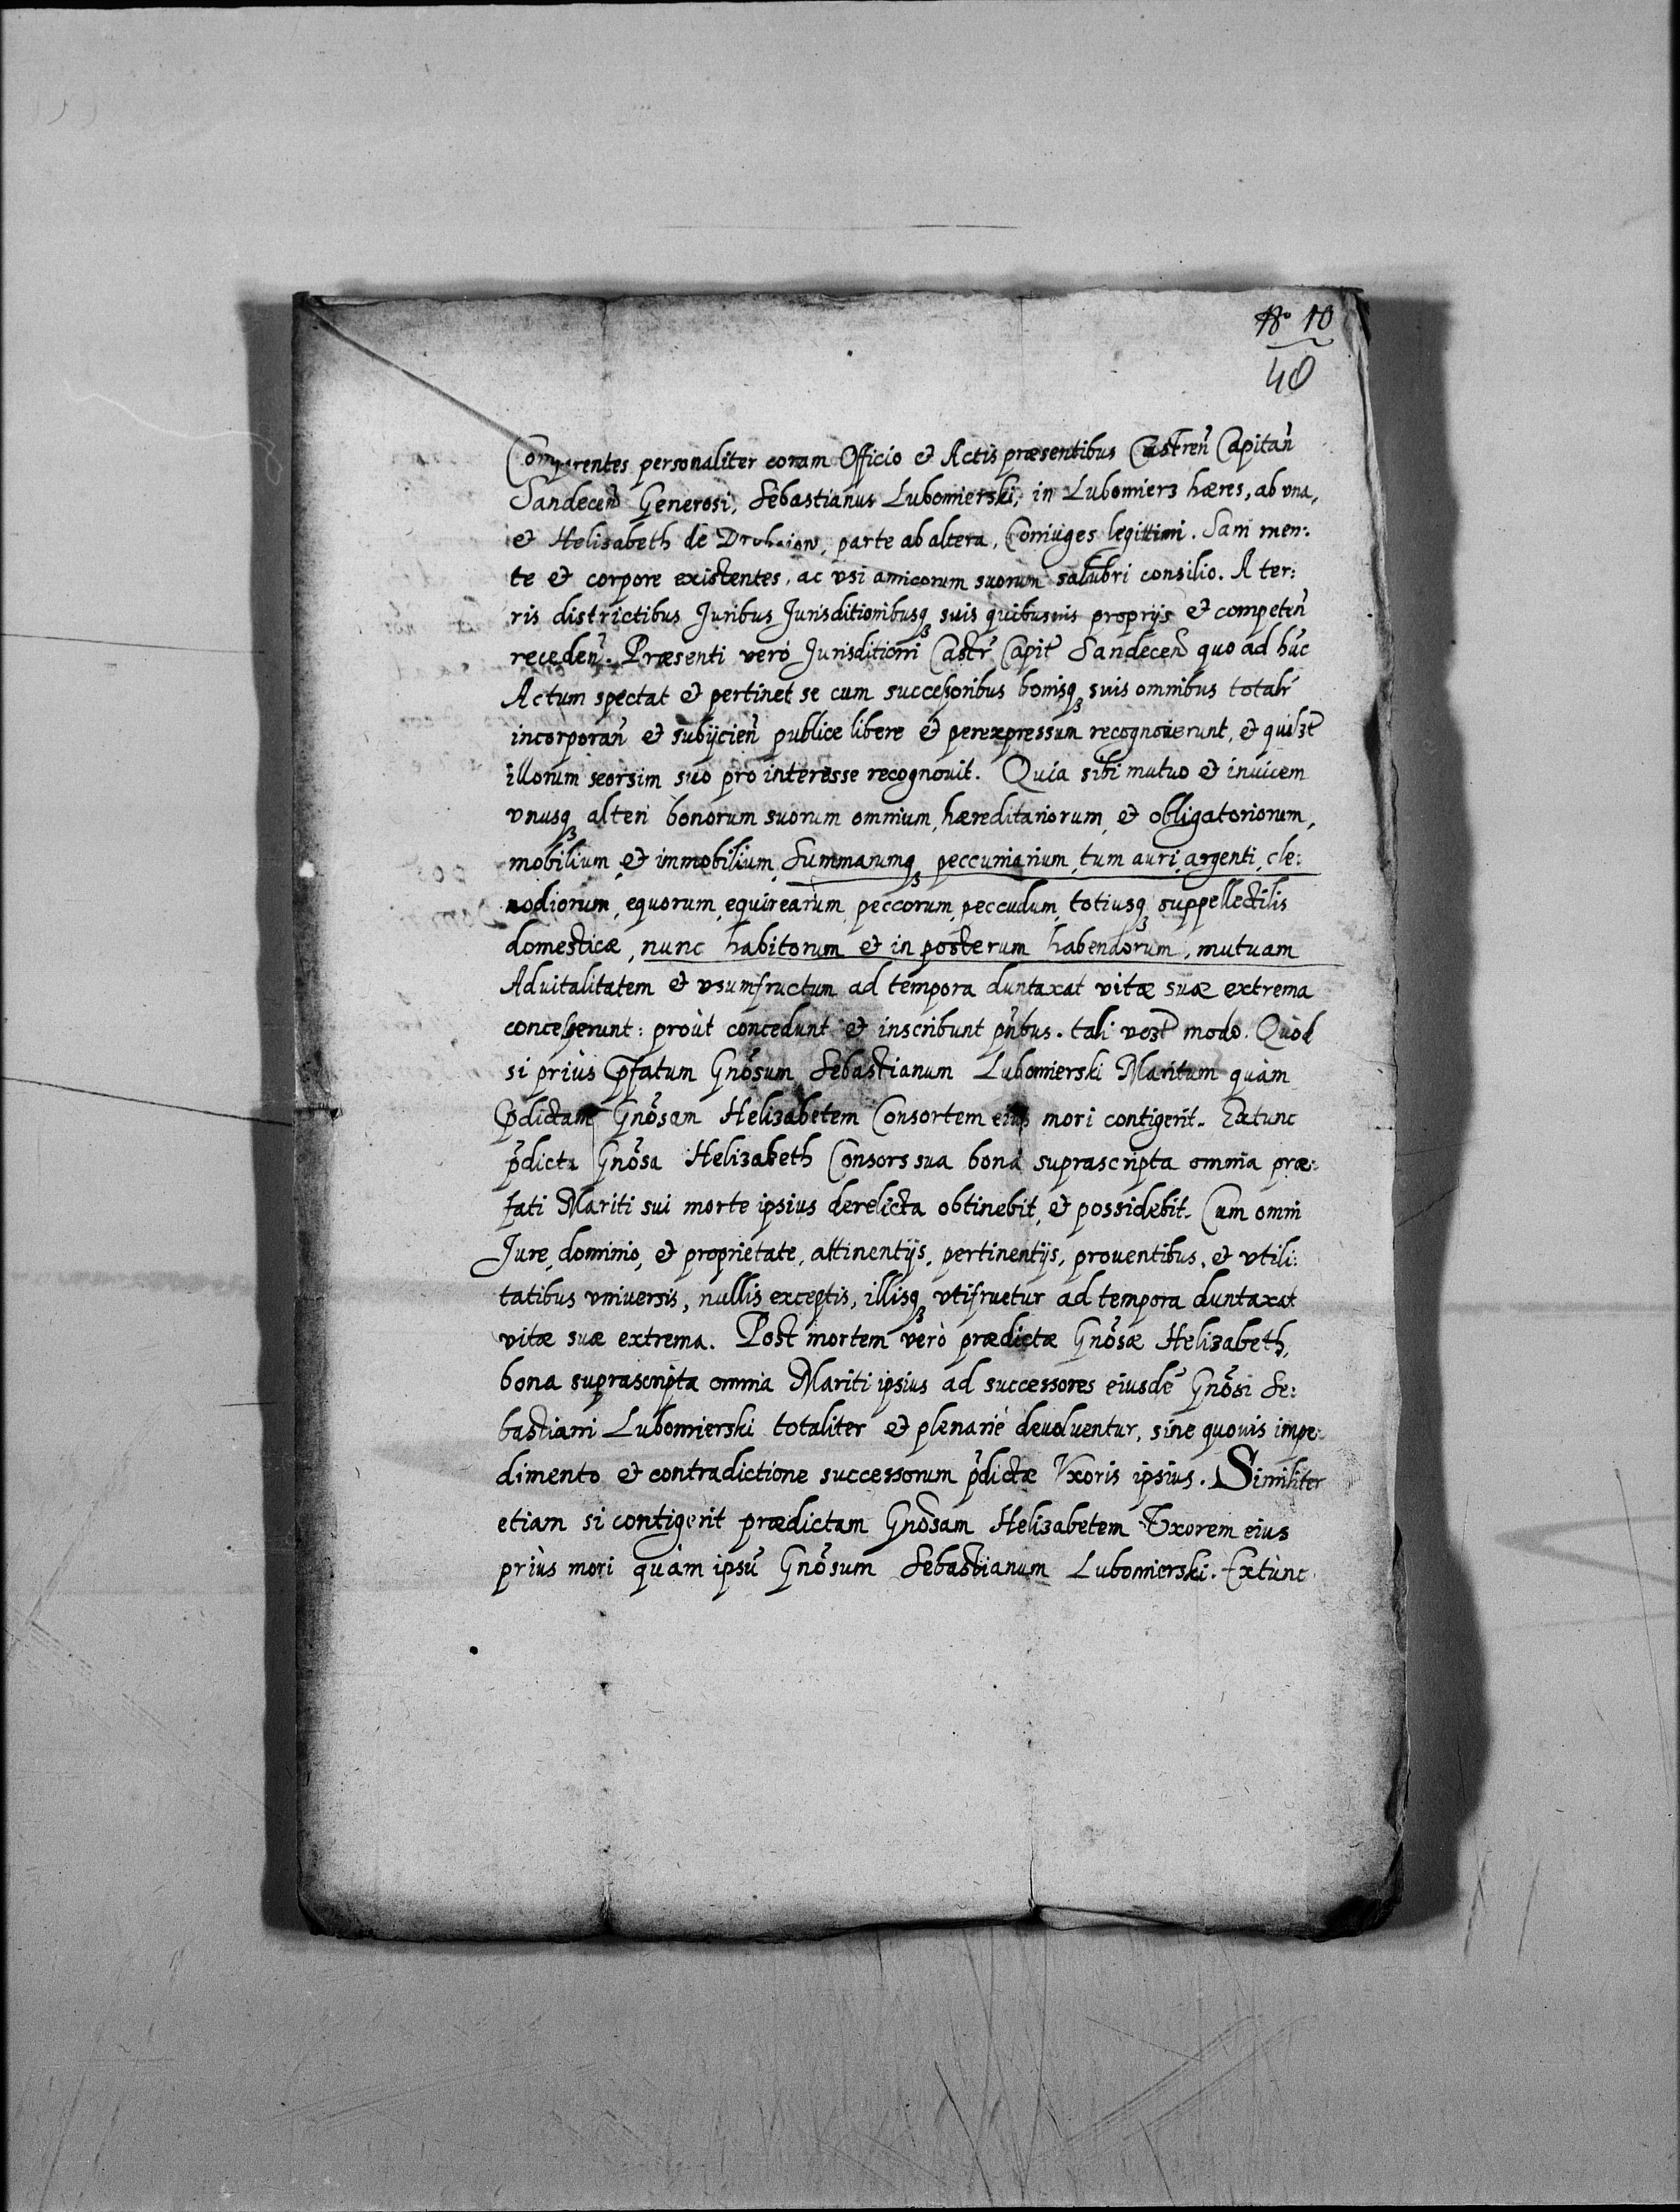 No 10
40
Comparentes personaliter coram Officio et Actis præsentibus Castreñ Capitañ
Sandeceñ Generosi, Sebastianus Lubomierski, in Lubomierz hæres, ab vna,
et Helisabeth de parte ab altera, Coniuges legittimi. Sani men:
te et corpore existentes, ac vsi amicorum suorum salubri consilio. A ter:
ris districtibus Juribus Jurisditionibusqȝ suis quibusuis proprijs et competeñ
recedeñ. Præsenti verò Jurisditioni Castr̃ Capit̃ Sandeceñ quo ad hũc
Actum spectat et pertinet se cum successoribus bonisqȝ suis omnibus totalr̃
incorporañ et subijcieñ publice libere et perexpressum recognouerunt, et quilȝt̃
illorum seorsim suo pro interesse recognouit. Quia sibi mutuo et inuicem
vnusqȝ alteri bonorum suorum omnium, hæreditariorum, et obligatoriorum,
mobilium, et immobilium, Summarumqȝ peccuniarium, tum auri, argenti, cle:
nodiorum, equorum, equirearum, peccorum, peccudum, totiusqȝ suppellectilis
domesticæ, nunc habitorum et in posterum habendorum, mutuam
Aduitalitatem et vsumfructum ad tempora duntaxat vitæ suæ extrema
concesserunt: proùt concedunt et inscribunt pñtbus. tali modo. Quòd
si priùs p̃fatum Gnõsum Sebastianum Lubomierski Maritum quàm
p̃dictam Gnõsam Helizabetem Consortem eius mori contigerit. Extunc
p̃dicta Gnõsa Helizabeth Consors sua bona suprascripta omnia præ:
fati Mariti sui morte ipsius derelicta obtinebit, et possidebit. Cum omni
Jure, dominio, et proprietate, attinentijs, pertinentijs, prouentibus, et vtili:
tatibus vniuersis, nullis exceptis, illisqȝ vtifruetur ad tempora duntaxat
vitæ suæ extrema. Post mortem verò prædictæ Gnõsæ Helizabeth,
bona suprascripta omnia Mariti ipsius ad successores eiusdẽ Gnõsi Se:
bastiani Lubomierski totaliter et plenariè deuoluentur, sine quouis impe:
dimento et contradictione successorum p̃dictæ Vxoris ipsius. Similiter
etiam si contigerit prædictam Gnõsam Helizabetem Vxorem eius
priùs mori quàm ipsũ Gnõsum Sebastianum Lubomierski. Extùnc